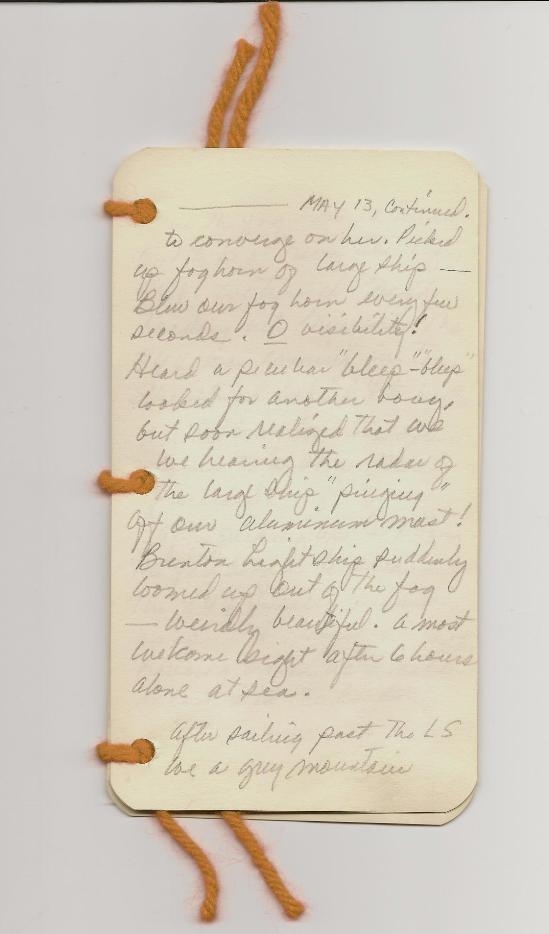 MAY 13, Continued.
to converge on her. Picked
up foghorn of large ship —
Blew our fog horn every few
seconds. O visibility!
Heard a peculiar "bleep"-"bleep"
looked for another bouy,
but soon realized that we
we hearing the radar of
the large ship "pinging"
off our aluminum mast!
Brenton Lightship suddenly
loomed up out of the fog
— weirdly beautiful. a most
welcome sight after 6 hours
alone at sea.
After sailing past the LS
we a grey mountain